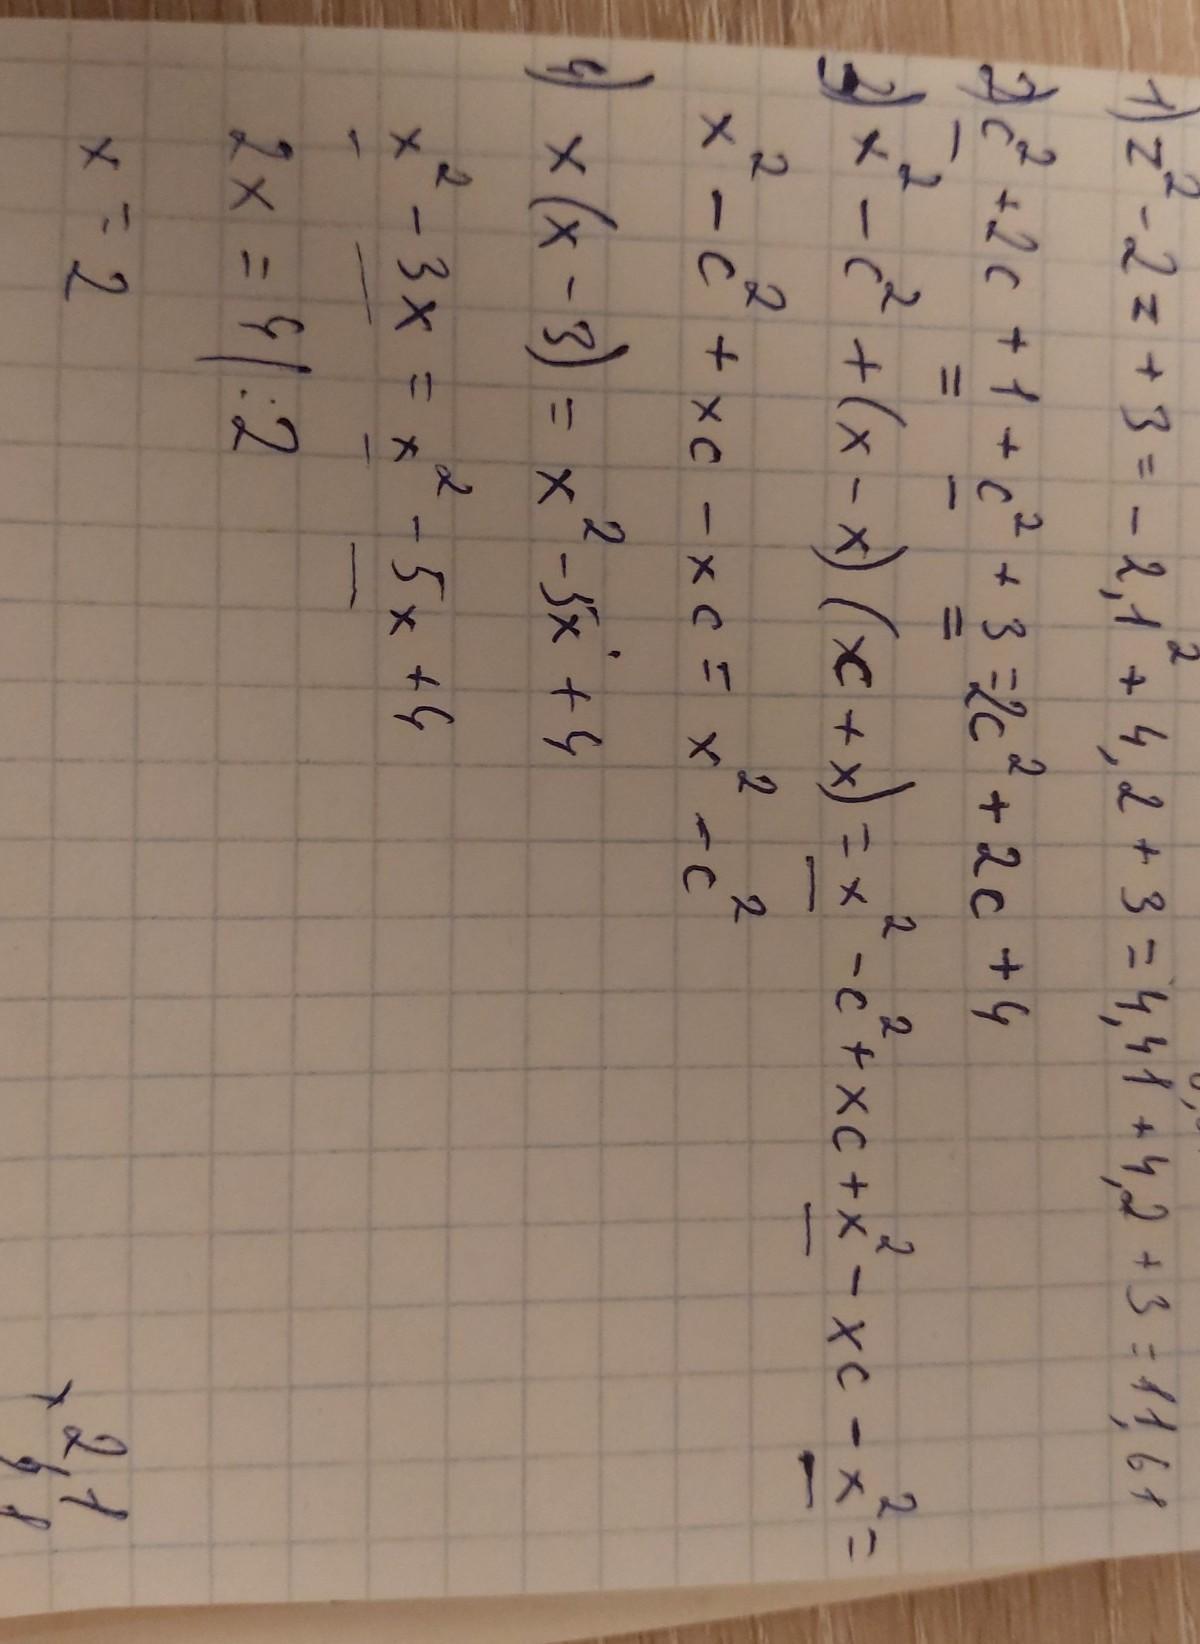 1) z² - 2z + 3 = - 2,1² + 4,2 + 3 = 4,41 + 4,2 + 3 = 11,61
2) c² + 2c + 1 + c² + 3 = 2c² + 2c + 4
3) x² - c² + (x - x) (c + x) = x² - c² + xc + x² - xc - x² =
x² - c² + xc - xc = x² - c²
4) x (x - 3) = x² - 5x + 4
x² - 3x = x² - 5x + 4
2x = 4 | : 2
x = 2
x 2,1